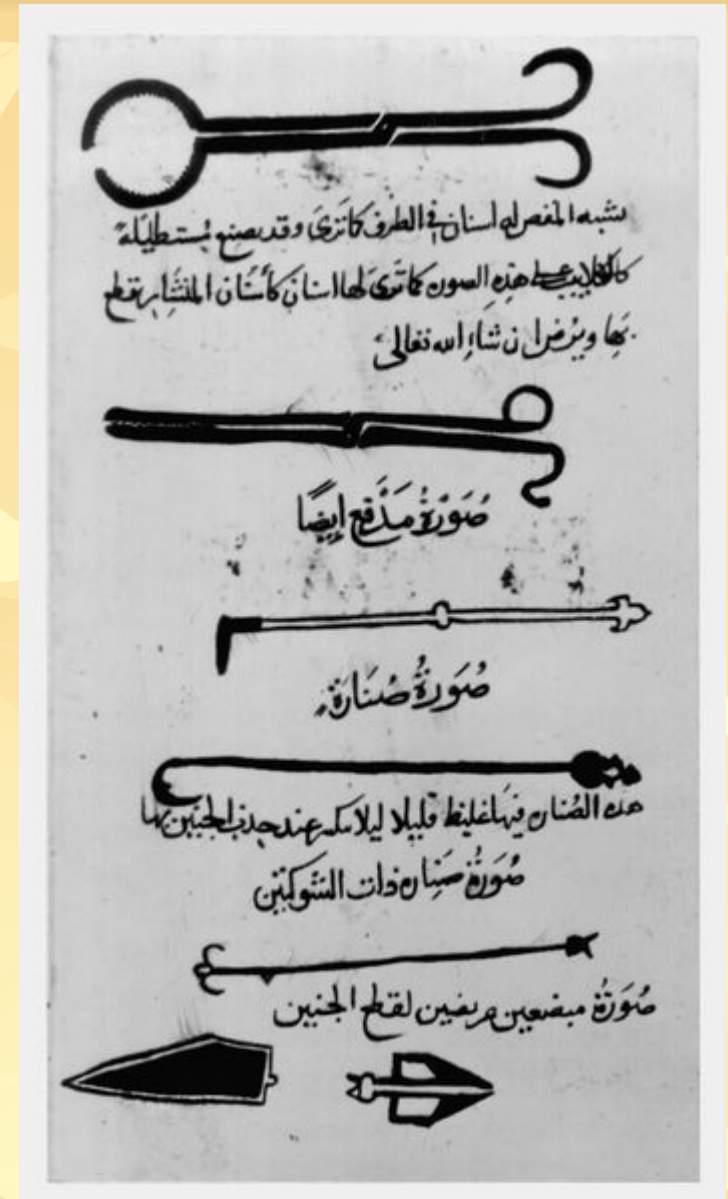 يشبه المقص له اسنان في الطرف كما ترى وقد يصنع مستطيلة
كالكلاليب على هذه الصورة كما ترى لها اسنان كأسنان المنشار يقطع
بها ويرض ان شاء الله تعالى
صُوَرَةُ مَدْفَع ايضًا
صُوَرةُ صنَارَة
هذه الصناره فيها غلظ قليلا ليلا تنكسر عند جذب الجنين بها
صُوَرةُ صناره ذات الشوكتين
صُوَرَةُ مبضعين عريضين لقطع الجنين